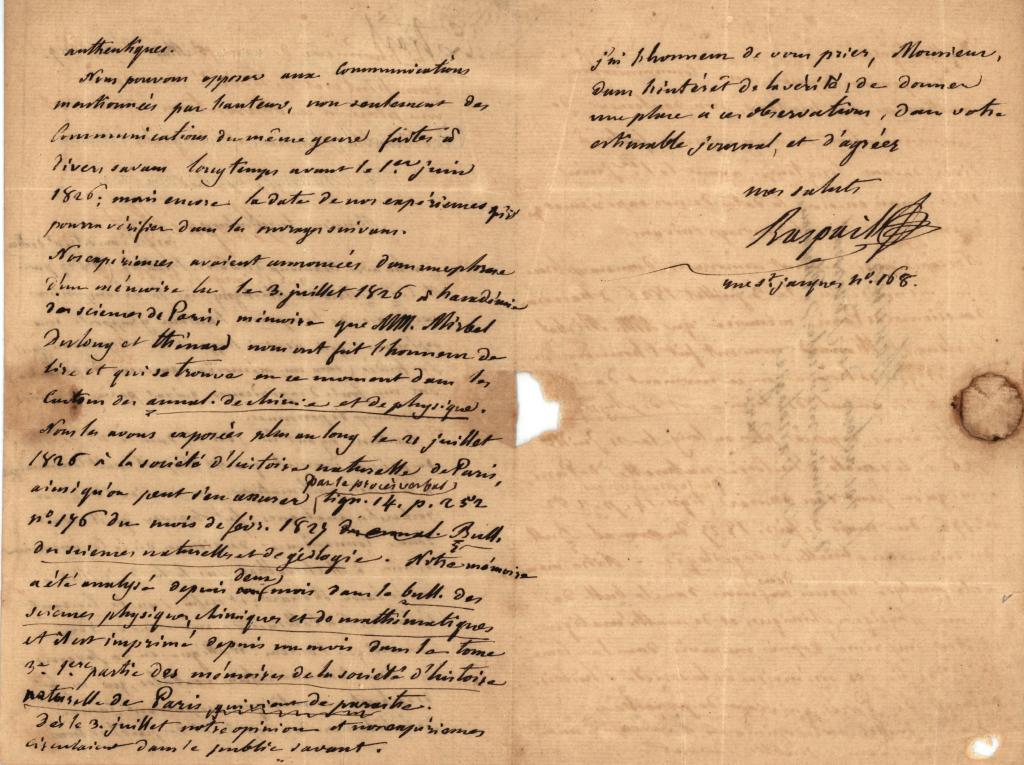 authentiques.
Nous pouvons opposer aux communications
mentionnées par l'auteur, non seulement des
communications du même genre faites à
divers savans longtemps avant le 1er juin
1826; mais encore la date de nos expériences qu'on
pourra vérifier dans les ouvrages suivans.
Nos expériences avaient annoncées dans une phrase
d'un mémoire lu le 3. juillet 1826 à l'académie
des sciences de Paris, mémoire que MM. Mirbel
Dulong et thénard nous ont fait l'honneur de
lire et qui se trouve en ce moment dans les
cartons des annal. de chimie et de physique.
Nous les avons exposées plus au long le 21 juillet
1826 à la société d'histoire naturelle de Paris,
ainsi qu'on peut s'en assurer par le procès verbal lign. 14. p. 252
n°. 176 du mois de févr. 1827 Bull.
des sciences naturelles et de géologie. Notre mémoire
a été analysé depuis deux mois dans le bull. des
sciences physiques, chimiques et de mathématiques
et il est imprimé depuis un mois dans le tome
3e 1ere partie des mémoires de la société d'histoire
naturelle de Paris qui vient de paraitre.
Dès le 3. juillet notre opinion et nos expériences
circulaient dans le public savant.
j'ai l'honneur de vous prier, Monsieur,
dans l'intérêt de la vérité, de donner
une place à ces observations, dans votre
estimable journal, et d'agréer
mes saluts
Raspail
rue St. jacques n°. 168.